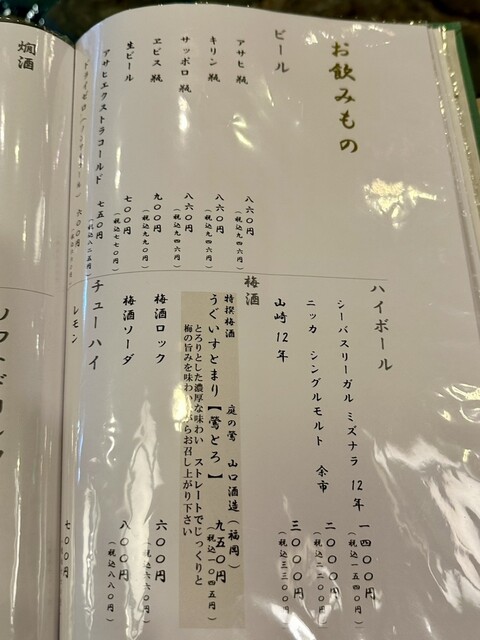 お飲みもの
ビール
アサヒ 瓶 八六〇円
(税込九四六円)
キリン 瓶 八六〇円
(税込九四六円)
サッポロ 瓶 八六〇円
(税込九四六円)
ヱビス 瓶 九〇〇円
(税込九九〇円)
生ビール 七〇〇円
(税込七七〇円)
アサヒエクストラコールド 七五〇円
(税込八二五円)
六〇〇円
ハイボール
シーバスリーガル ミズナラ 12年 一四〇〇円
(税込一五四〇円)
ニッカ シングルモルト 余市 二〇〇〇円
(税込二二〇〇円)
山崎 12年 三〇〇〇円
(税込三三〇〇円)
梅酒
特撰梅酒 庭の鶯 山口酒造(福岡)
うぐいすとまり【鶯とろ】 九五〇円
(税込一〇四五円)
とろりとした濃厚な味わい ストレートでじっくりと
梅の旨みを味わいながらお召し上がり下さい
梅酒ロック 六〇〇円
(税込六六〇円)
梅酒ソーダ 八〇〇円
(税込八八〇円)
チューハイ
レモン 七〇〇円
燗酒